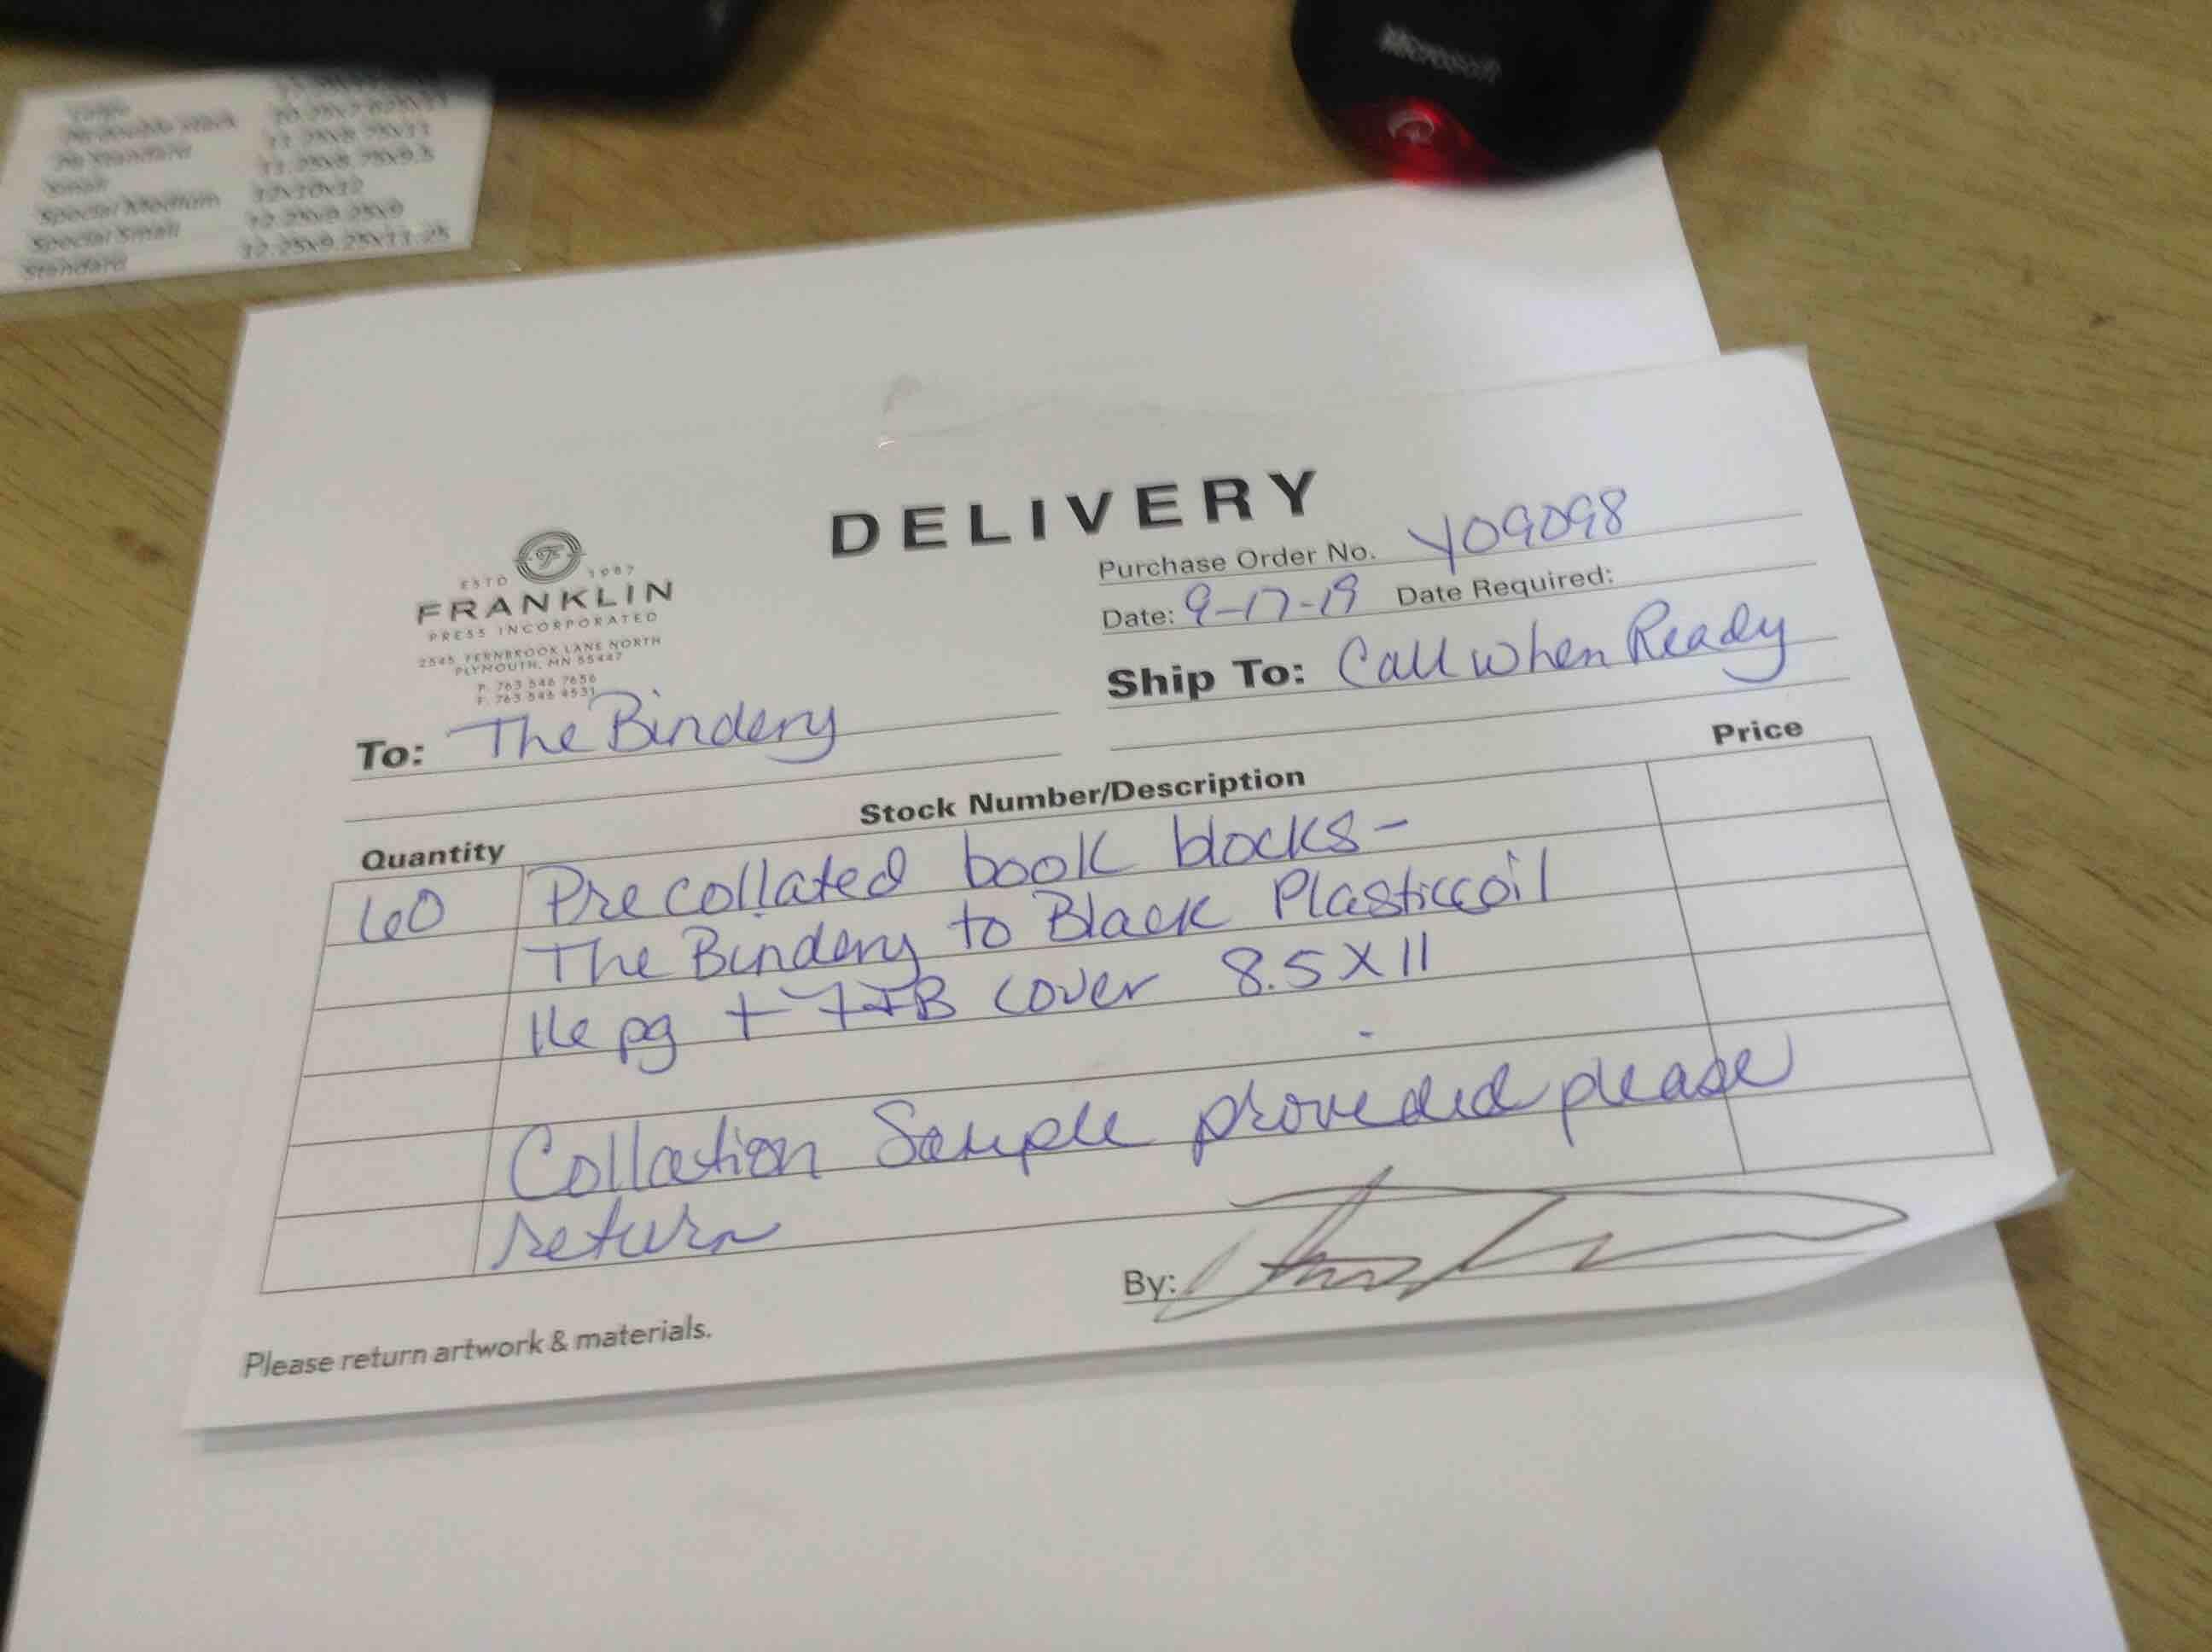 Microsoft
Special Medium
12x10x12
Special Small
12.25x9.25x9
Standard
12.25x9.25x11.25
DELIVERY
ESTD 1987
FRANKLIN
PRESS INCORPORATED
2545 FERNBROOK LANE NORTH
PLYMOUTH, MN 55447
P. 763 546 7656
F. 763 546 4531
Purchase Order No. Y09098
Date: 9-17-19 Date Required:
Ship To: Call when Ready
To: The Bindery
Price
Stock Number/Description
Quantity
60 Pre collated book blocks -
The Bindery to Black Plasticcoil
16 pg + F+B cover 8.5 X 11
Collation Sample provided please
return
By:
Please return artwork & materials.